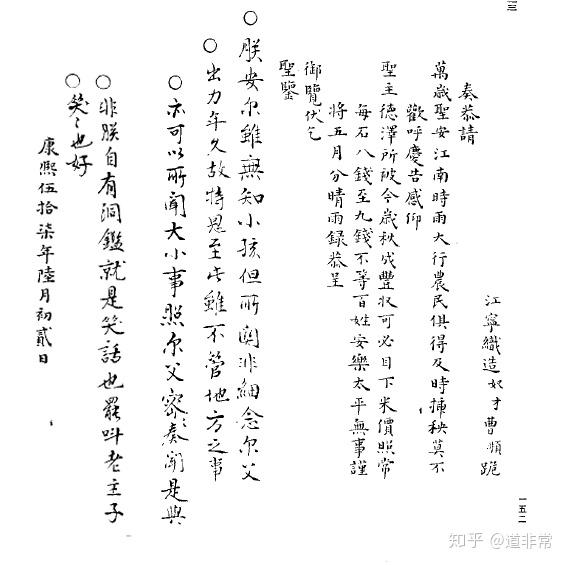 江寧織造奴才曹頫跪
奏恭請
萬歲聖安江南時雨大行農民俱得及時插秧莫不
歡呼慶告感仰
聖主德澤所被今歲秋成豐收可必目下米價照常
每石八錢至九錢不等百姓安樂太平無事謹
將五月分晴雨錄恭呈
御覽伏乞
聖鑒
○朕安尔雖無知小孩但所關非細念尔父
○出力年久故特恩至此雖不管地方之事
○亦可以所聞大小事照尔父密〻奏聞是與
○非朕自有洞鑑就是笑話也罷叫老主子
○笑〻也好
康熙伍拾柒年陸月初貳日
一五二
知乎 @道非常